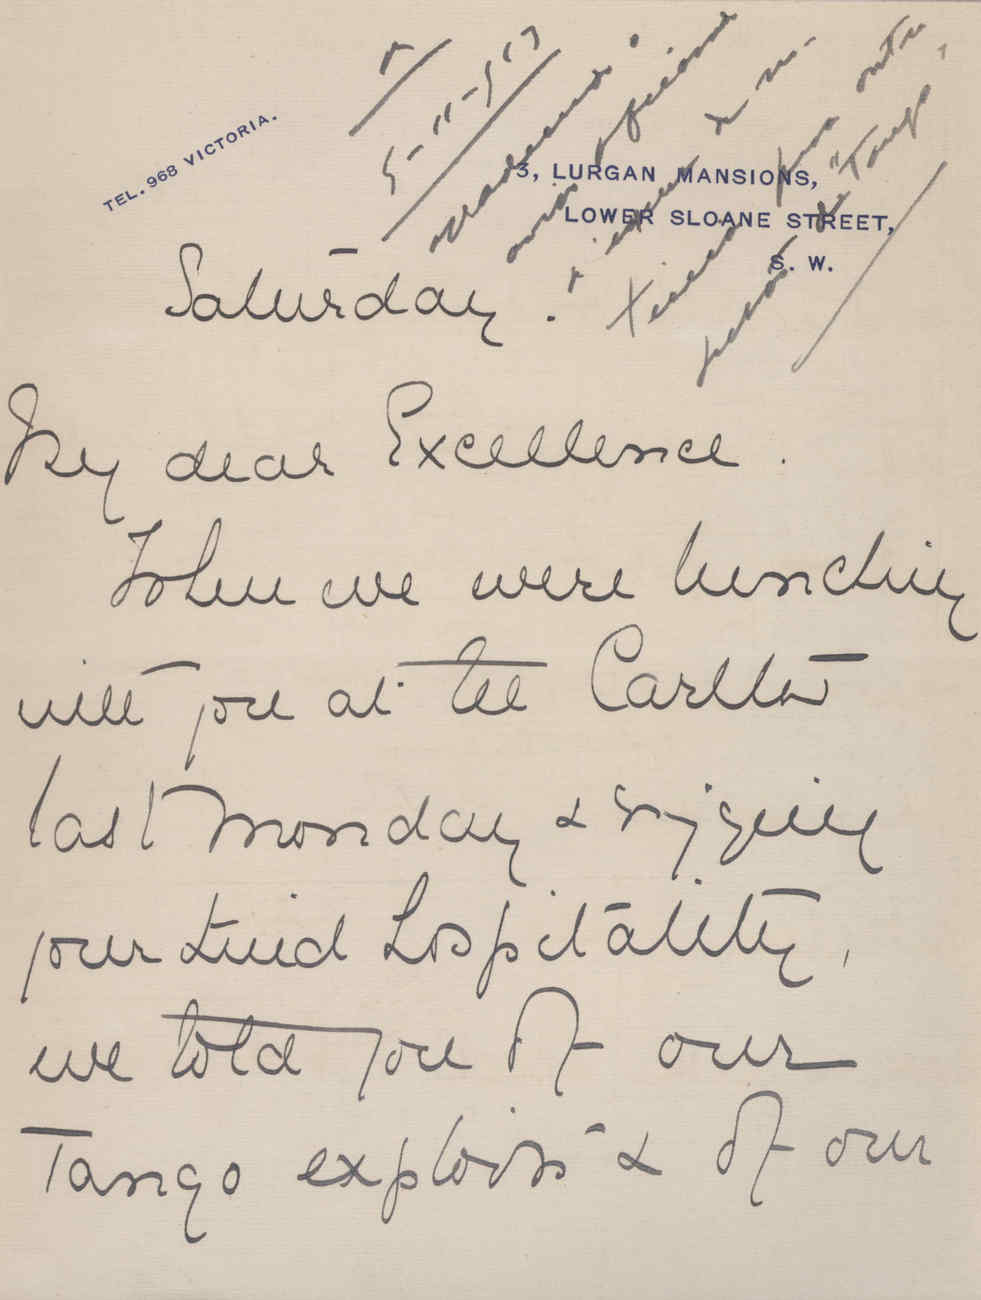 TEL. 968 VICTORIA.
3, LURGAN MANSIONS,
LOWER SLOANE STREET,
S. W.
Saturday.
My dear Excellence.
When we were lunching
with you at the Carlton
last Monday & enjoying
your kind hospitality,
we told you of our
Tango exploits & of our